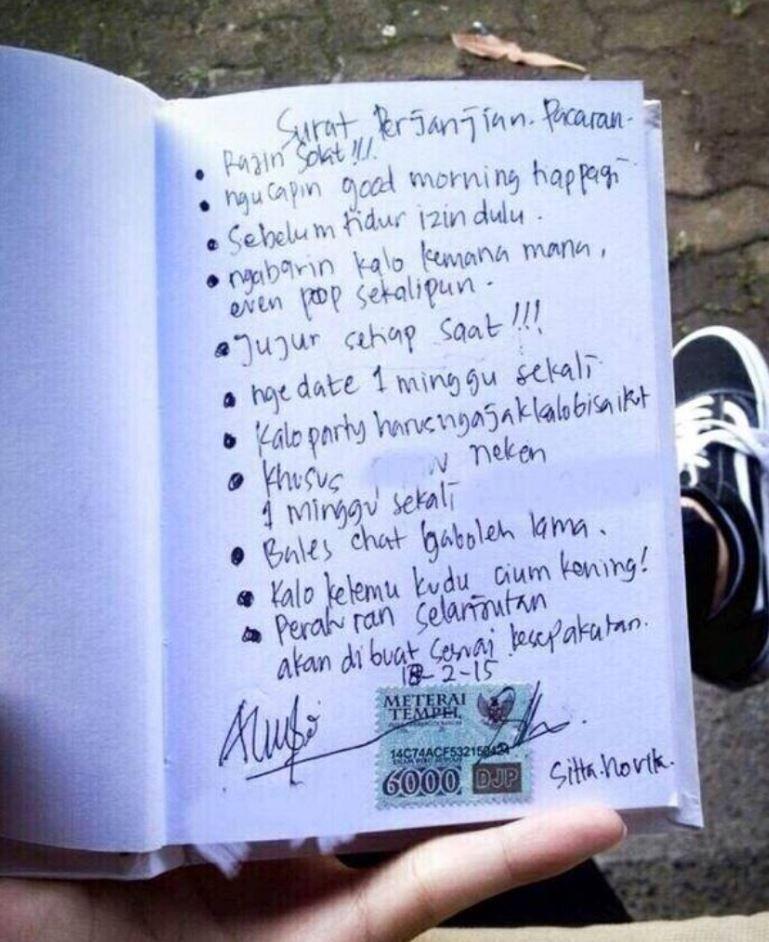 Surat Perjanjian. Pacaran.
• Rajin Solat!!!
• ngucapin good morning tiap pagi
• Sebelum tidur izin dulu.
• ngabarin kalo kemana mana,
even poop sekalipun.
• Jujur setiap saat!!!
• nge date 1 minggu sekali
• Kalo party harus ngajak kalo bisa ikut
• Khusus neken
1 minggu sekali
• Bales chat gaboleh lama.
• Kalo ketemu kudu cium kening!
• Peraturan selanjutan
akan dibuat sesuai kesepakatan.
18-2-15
METERAI
TEMPEL
14C74ACF532150424
ENAM RIBU RUPIAH
6000 DJP
Sitta.novita.